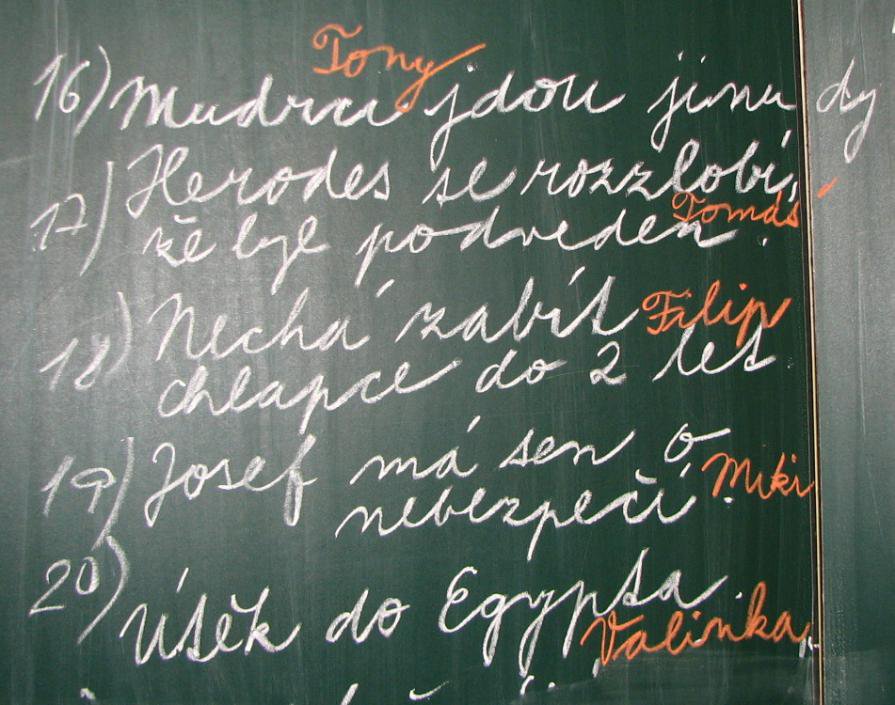 Tony
16) Mudrci jdou jinudy
17) Herodes se rozzlobí,
že byl podveden. Tomáš
18) Nechá zabít Filip
chlapce do 2 let
19) Josef má sen o
nebezpečí. Miki
20) Útěk do Egypta.
Valinka